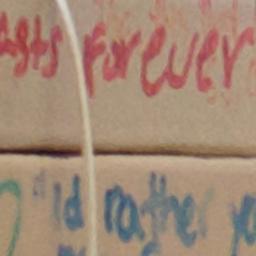 asts forever
"Id rather yo